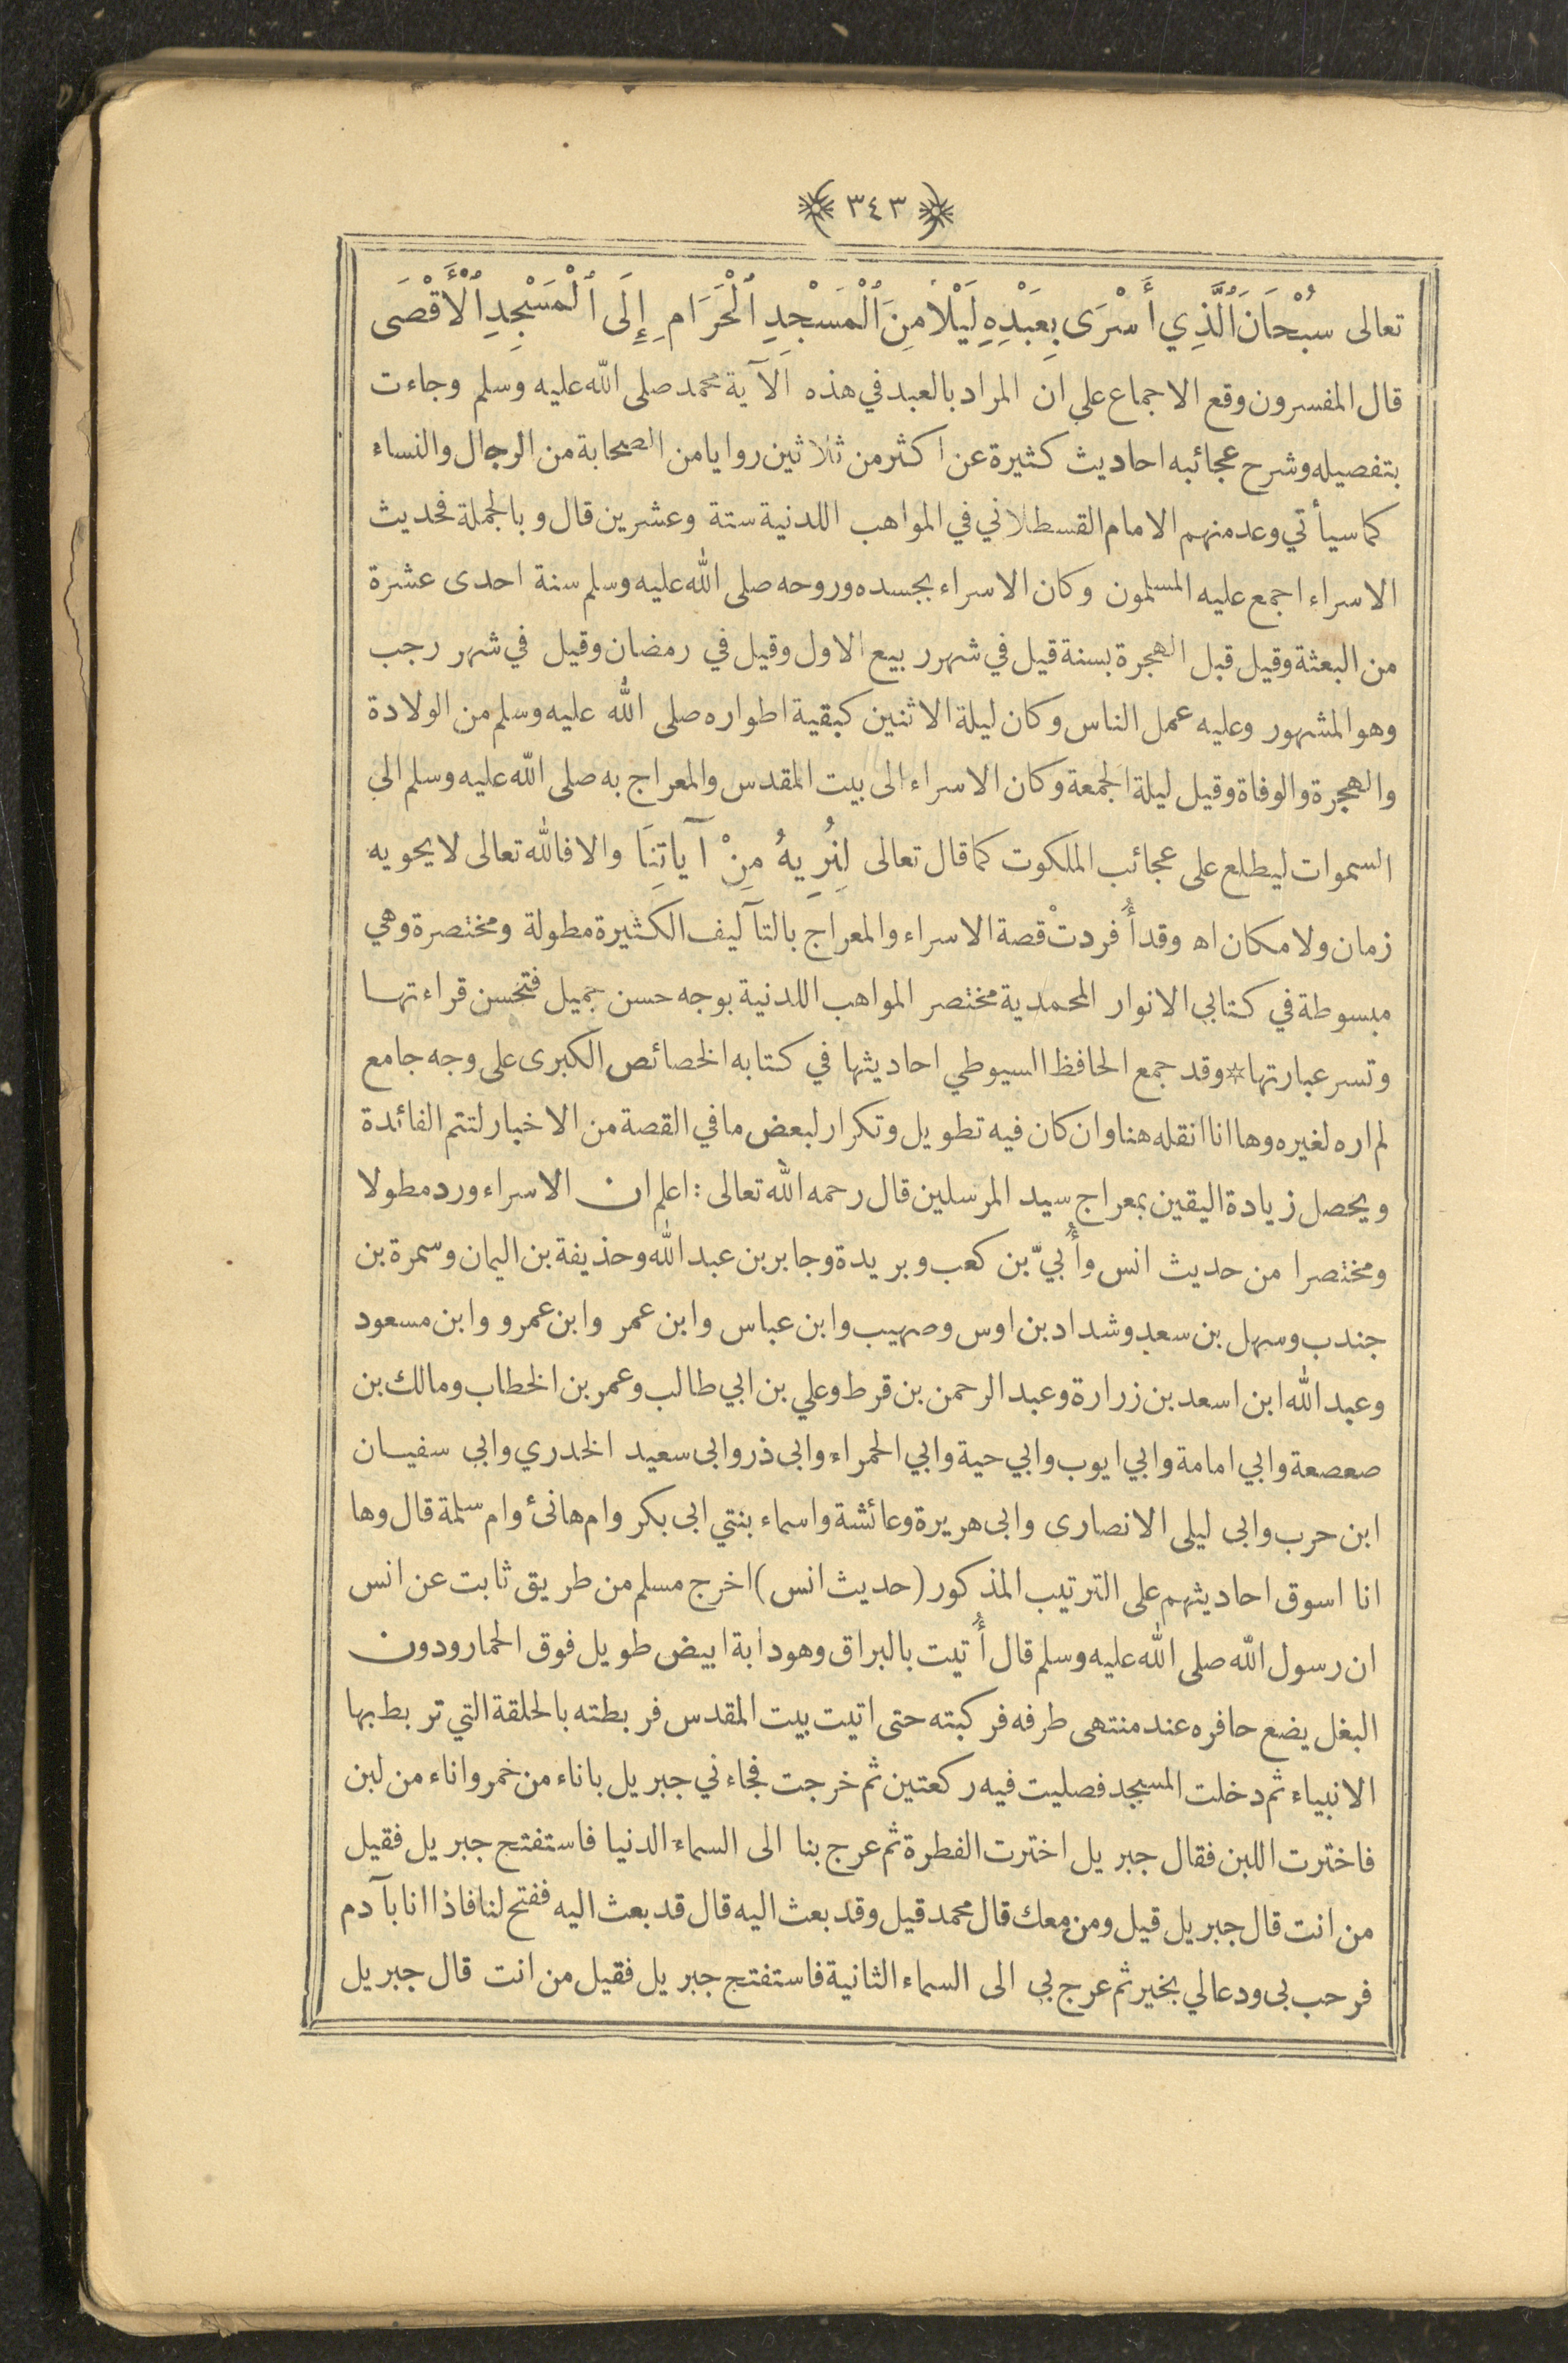 ٣٤٣
تعالى سُبْحَانَ ٱلَّذِي أَسْرَى بِعَبْدِهِ لَيْلًا مِنَ ٱلْمَسْجِدِ ٱلْحَرَامِ إِلَى ٱلْمَسْجِدِ ٱلْأَقْصَى
قال المفسرون وقع الاجماع على ان المراد بالعبد في هذه الآية محمد صلى الله عليه وسلم وجاءت
بتفصيله وشرح عجائبه احاديث كثيرة عن اكثر من ثلاثين راويا من الصحابة من الرجال والنساء
كما سيأتي وعد منهم الامام القسطلاني في المواهب اللدنية ستة وعشرين قال وبالجملة فحديث
الاسراء اجمع عليه المسلمون وكان الاسراء بجسده وروحه صلى الله عليه وسلم سنة احدى عشرة
من البعثة وقيل قبل الهجرة بسنة قيل في شهر ربيع الاول وقيل في رمضان وقيل في شهر رجب
وهو المشهور وعليه عمل الناس وكان ليلة الاثنين كبقية اطواره صلى الله عليه وسلم من الولادة
والهجرة والوفاة وقيل ليلة الجمعة وكان الاسراء الى بيت المقدس والمعراج به صلى الله عليه وسلم الى
السموات ليطلع على عجائب الملكوت كما قال تعالى لِنُرِيهُ مِنْ آيَاتِنَا والا فالله تعالى لا يحويه
زمان ولا مكان اه وقد أُفردتْ قصة الاسراء والمعراج بالتآليف الكثيرة مطولة ومختصرة وهي
مبسوطة في كتابي الانوار المحمدية مختصر المواهب اللدنية بوجه حسن جميل فتحسن قراءتها
وتسر عبارتها * وقد جمع الحافظ السيوطي احاديثها في كتابه الخصائص الكبرى على وجه جامع
لم اره لغيره وها انا انقله هنا وان كان فيه تطويل وتكرار لبعض ما في القصة من الاخبار لتتم الفائدة
ويحصل زيادة اليقين بمعراج سيد المرسلين قال رحمه الله تعالى : اعلم ان الاسراء ورد مطولا
ومختصرا من حديث انس وأُبيّ بن كعب وبريدة وجابر بن عبد الله وحذيفة بن اليمان وسمرة بن
جندب وسهل بن سعد وشداد بن اوس وصهيب وابن عباس وابن عمر وابن عمرو وابن مسعود
وعبد الله ابن اسعد بن زرارة وعبد الرحمن بن قرط وعلي بن ابي طالب وعمر بن الخطاب ومالك بن
صعصعة وابي امامة وابي ايوب وابي حية وابي الحمراء وابى ذر وابى سعيد الخدري وابى سفيان
ابن حرب وابى ليلى الانصارى وابى هريرة وعائشة واسماء بنتي ابى بكر وام هانئ وام سلمة قال وها
انا اسوق احاديثهم على الترتيب المذكور ( حديث انس ) اخرج مسلم من طريق ثابت عن انس
ان رسول الله صلى الله عليه وسلم قال أُتيت بالبراق وهو دابة ابيض طويل فوق الحمار ودون
البغل يضع حافره عند منتهى طرفه فركبته حتى اتيت بيت المقدس فربطته بالحلقة التي تربط بها
الانبياء ثم دخلت المسجد فصليت فيه ركعتين ثم خرجت فجاءني جبريل باناء من خمر واناء من لبن
فاخترت اللبن فقال جبريل اخترت الفطرة ثم عرج بنا الى السماء الدنيا فاستفتح جبريل فقيل
من انت قال جبريل قيل ومن معك قال محمد قيل وقد بعث اليه قال قد بعث اليه ففتح لنا فاذا انا بآدم
فرحب بى ودعا لي بخير ثم عرج بى الى السماء الثانية فاستفتح جبريل فقيل من انت قال جبريل